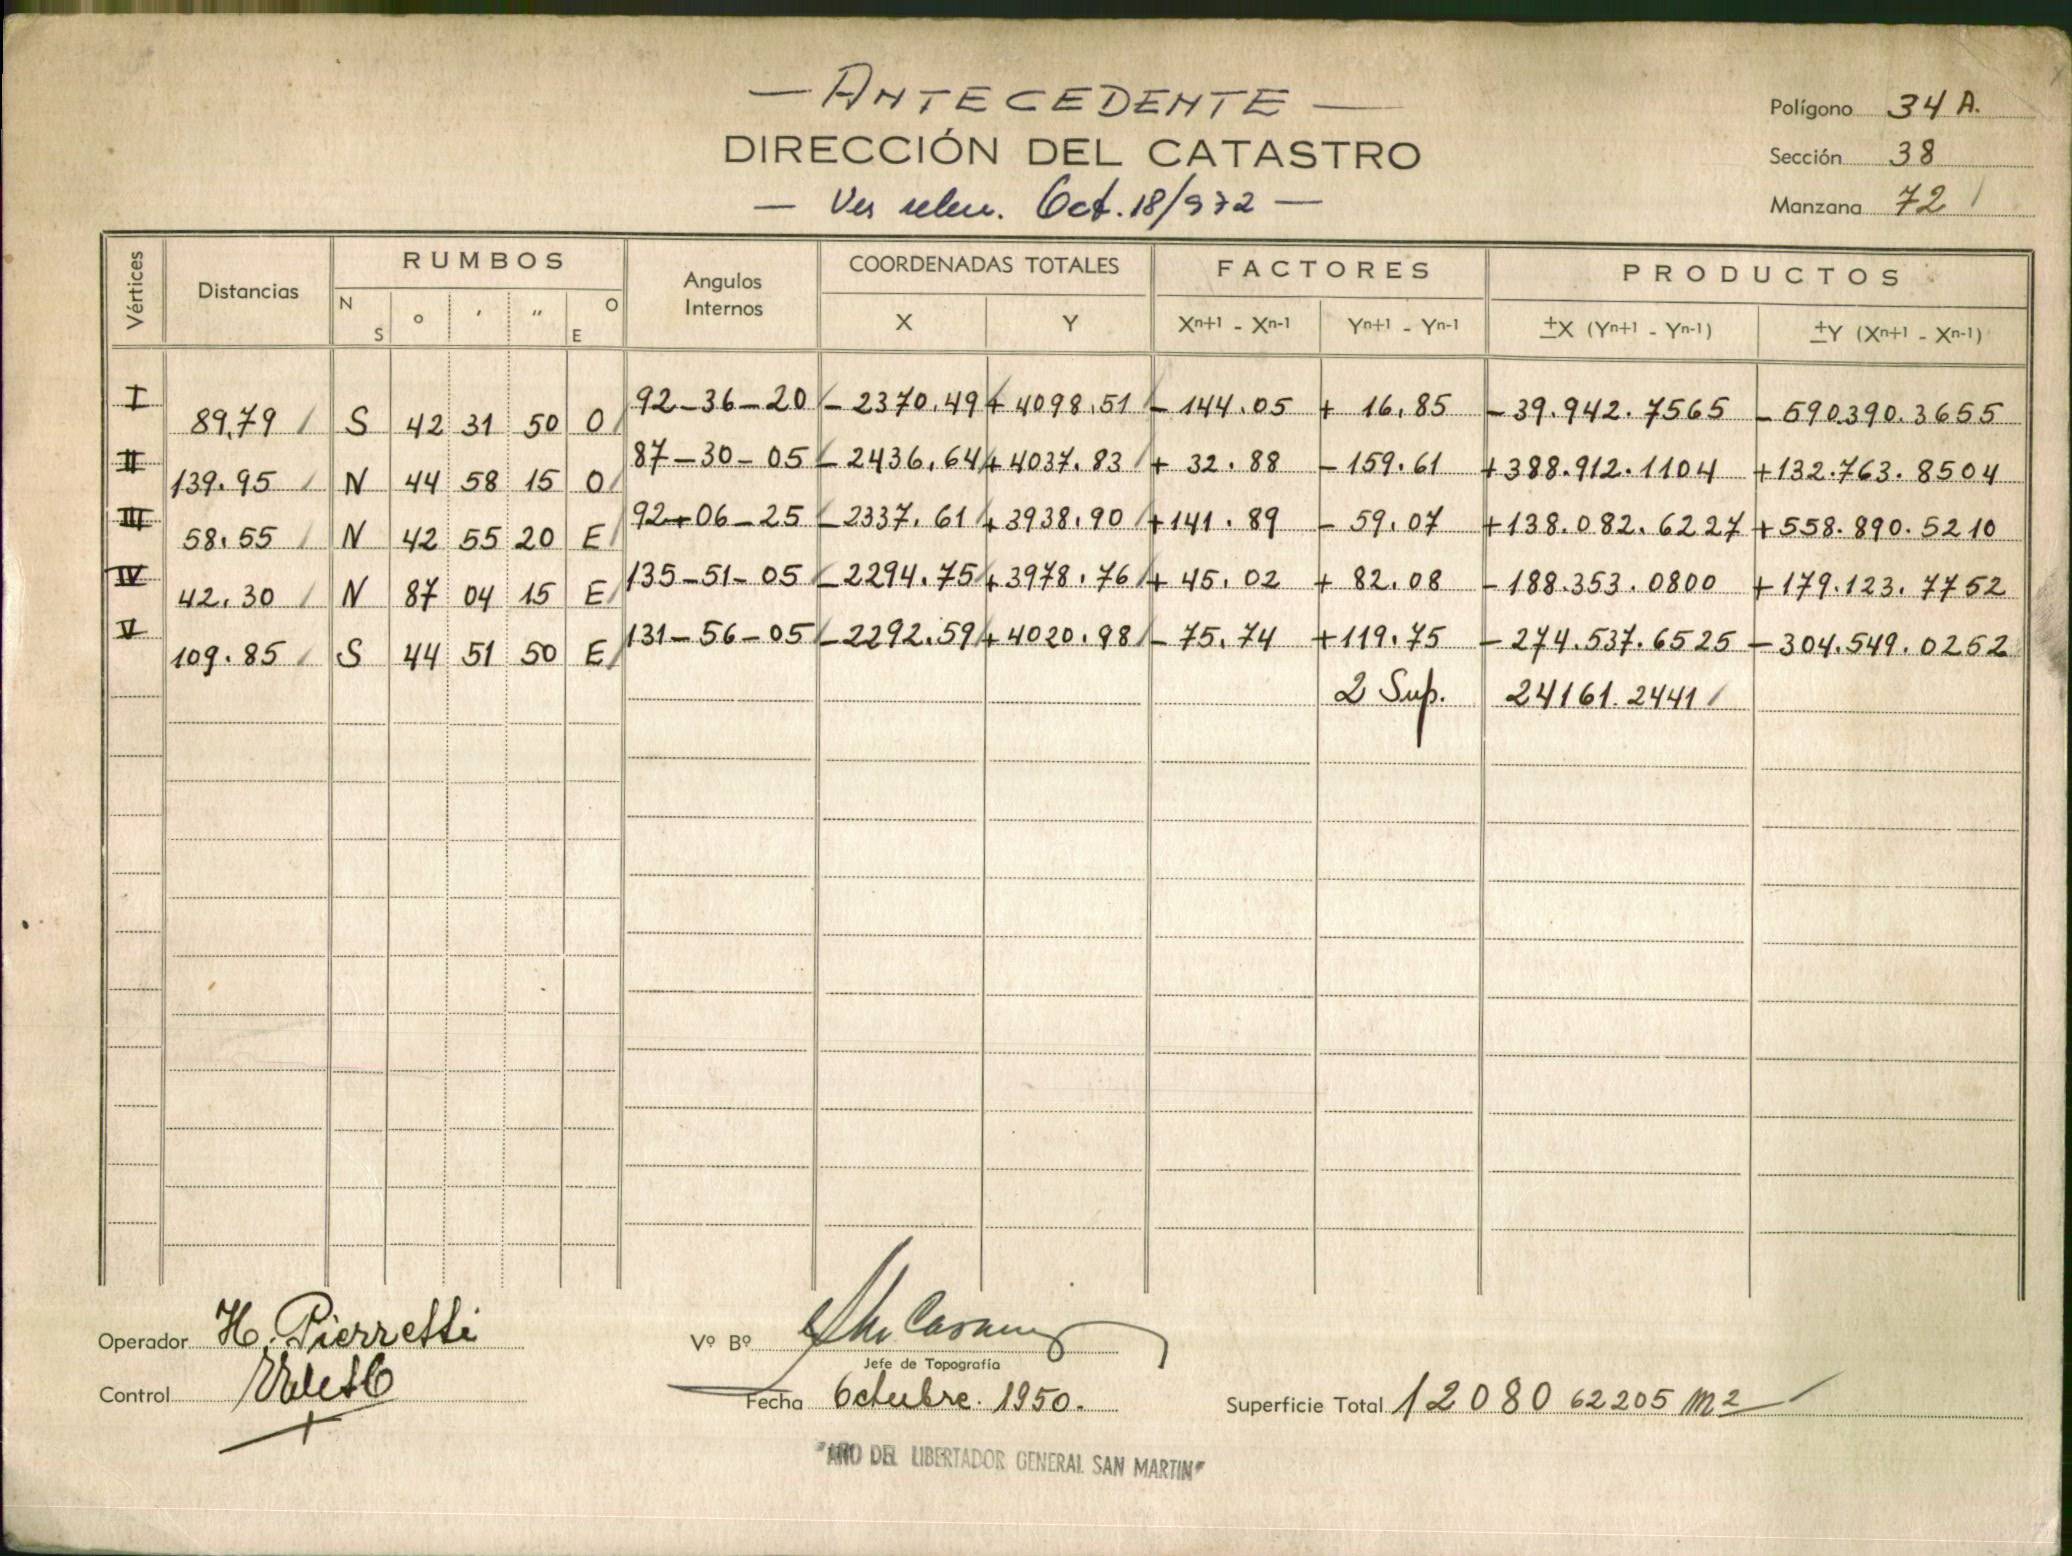 — ANTECEDENTE —
DIRECCIÓN DEL CATASTRO
— Ver relev. Oct. 18/972 —
Polígono 34 A.
Sección 38
Manzana 72
Vértices Distancias RUMBOS Angulos Internos COORDENADAS TOTALES FACTORES PRODUCTOS
N S ° ' " O E X Y Xn+1 - Xn-1 Yn+1 - Yn-1 ±X (Yn+1 - Yn-1) ±Y (Xn+1 - Xn-1)
I 92-36-20 - 2370.49 + 4098.51 - 144.05 + 16.85 - 39.942.7565 - 590.390.3655
89.79 S 42 31 50 O
II 87-30-05 - 2436.64 + 4037.83 + 32.88 - 159.61 + 388.912.1104 + 132.763.8504
139.95 N 44 58 15 O
III 92-06-25 - 2337.61 + 3938.90 + 141.89 - 59.07 + 138.082.6227 + 558.890.5210
58.55 N 42 55 20 E
IV 135-51-05 - 2294.75 + 3978.76 + 45.02 + 82.08 - 188.353.0800 + 179.123.7752
42.30 N 87 04 15 E
V 131-56-05 - 2292.59 + 4020.98 - 75.74 + 119.75 - 274.537.6525 - 304.549.0252
109.85 S 44 51 50 E
2 Sup. 24161.2441
Operador H. Pierretti
Control
Vº Bº
Jefe de Topografía
Fecha Octubre. 1950.
Superficie Total 12080 62205 m2
"AÑO DEL LIBERTADOR GENERAL SAN MARTIN"